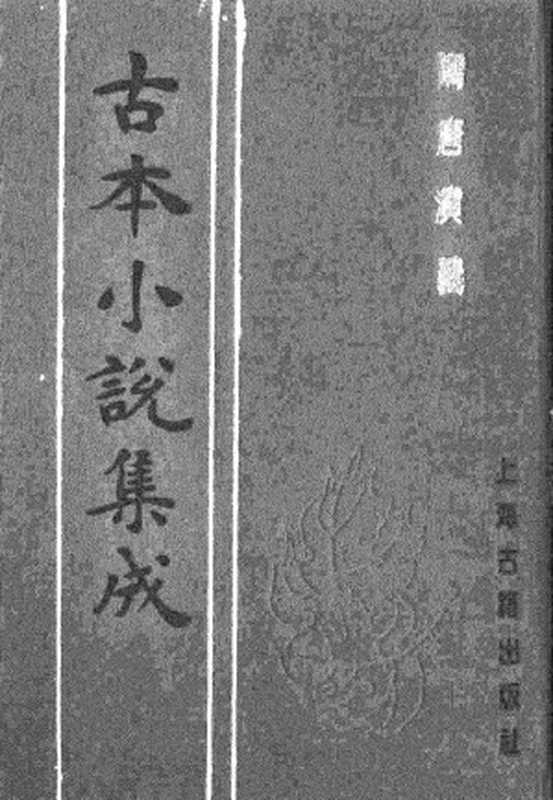 隋唐演義
上海古籍出版社
古本小說集成